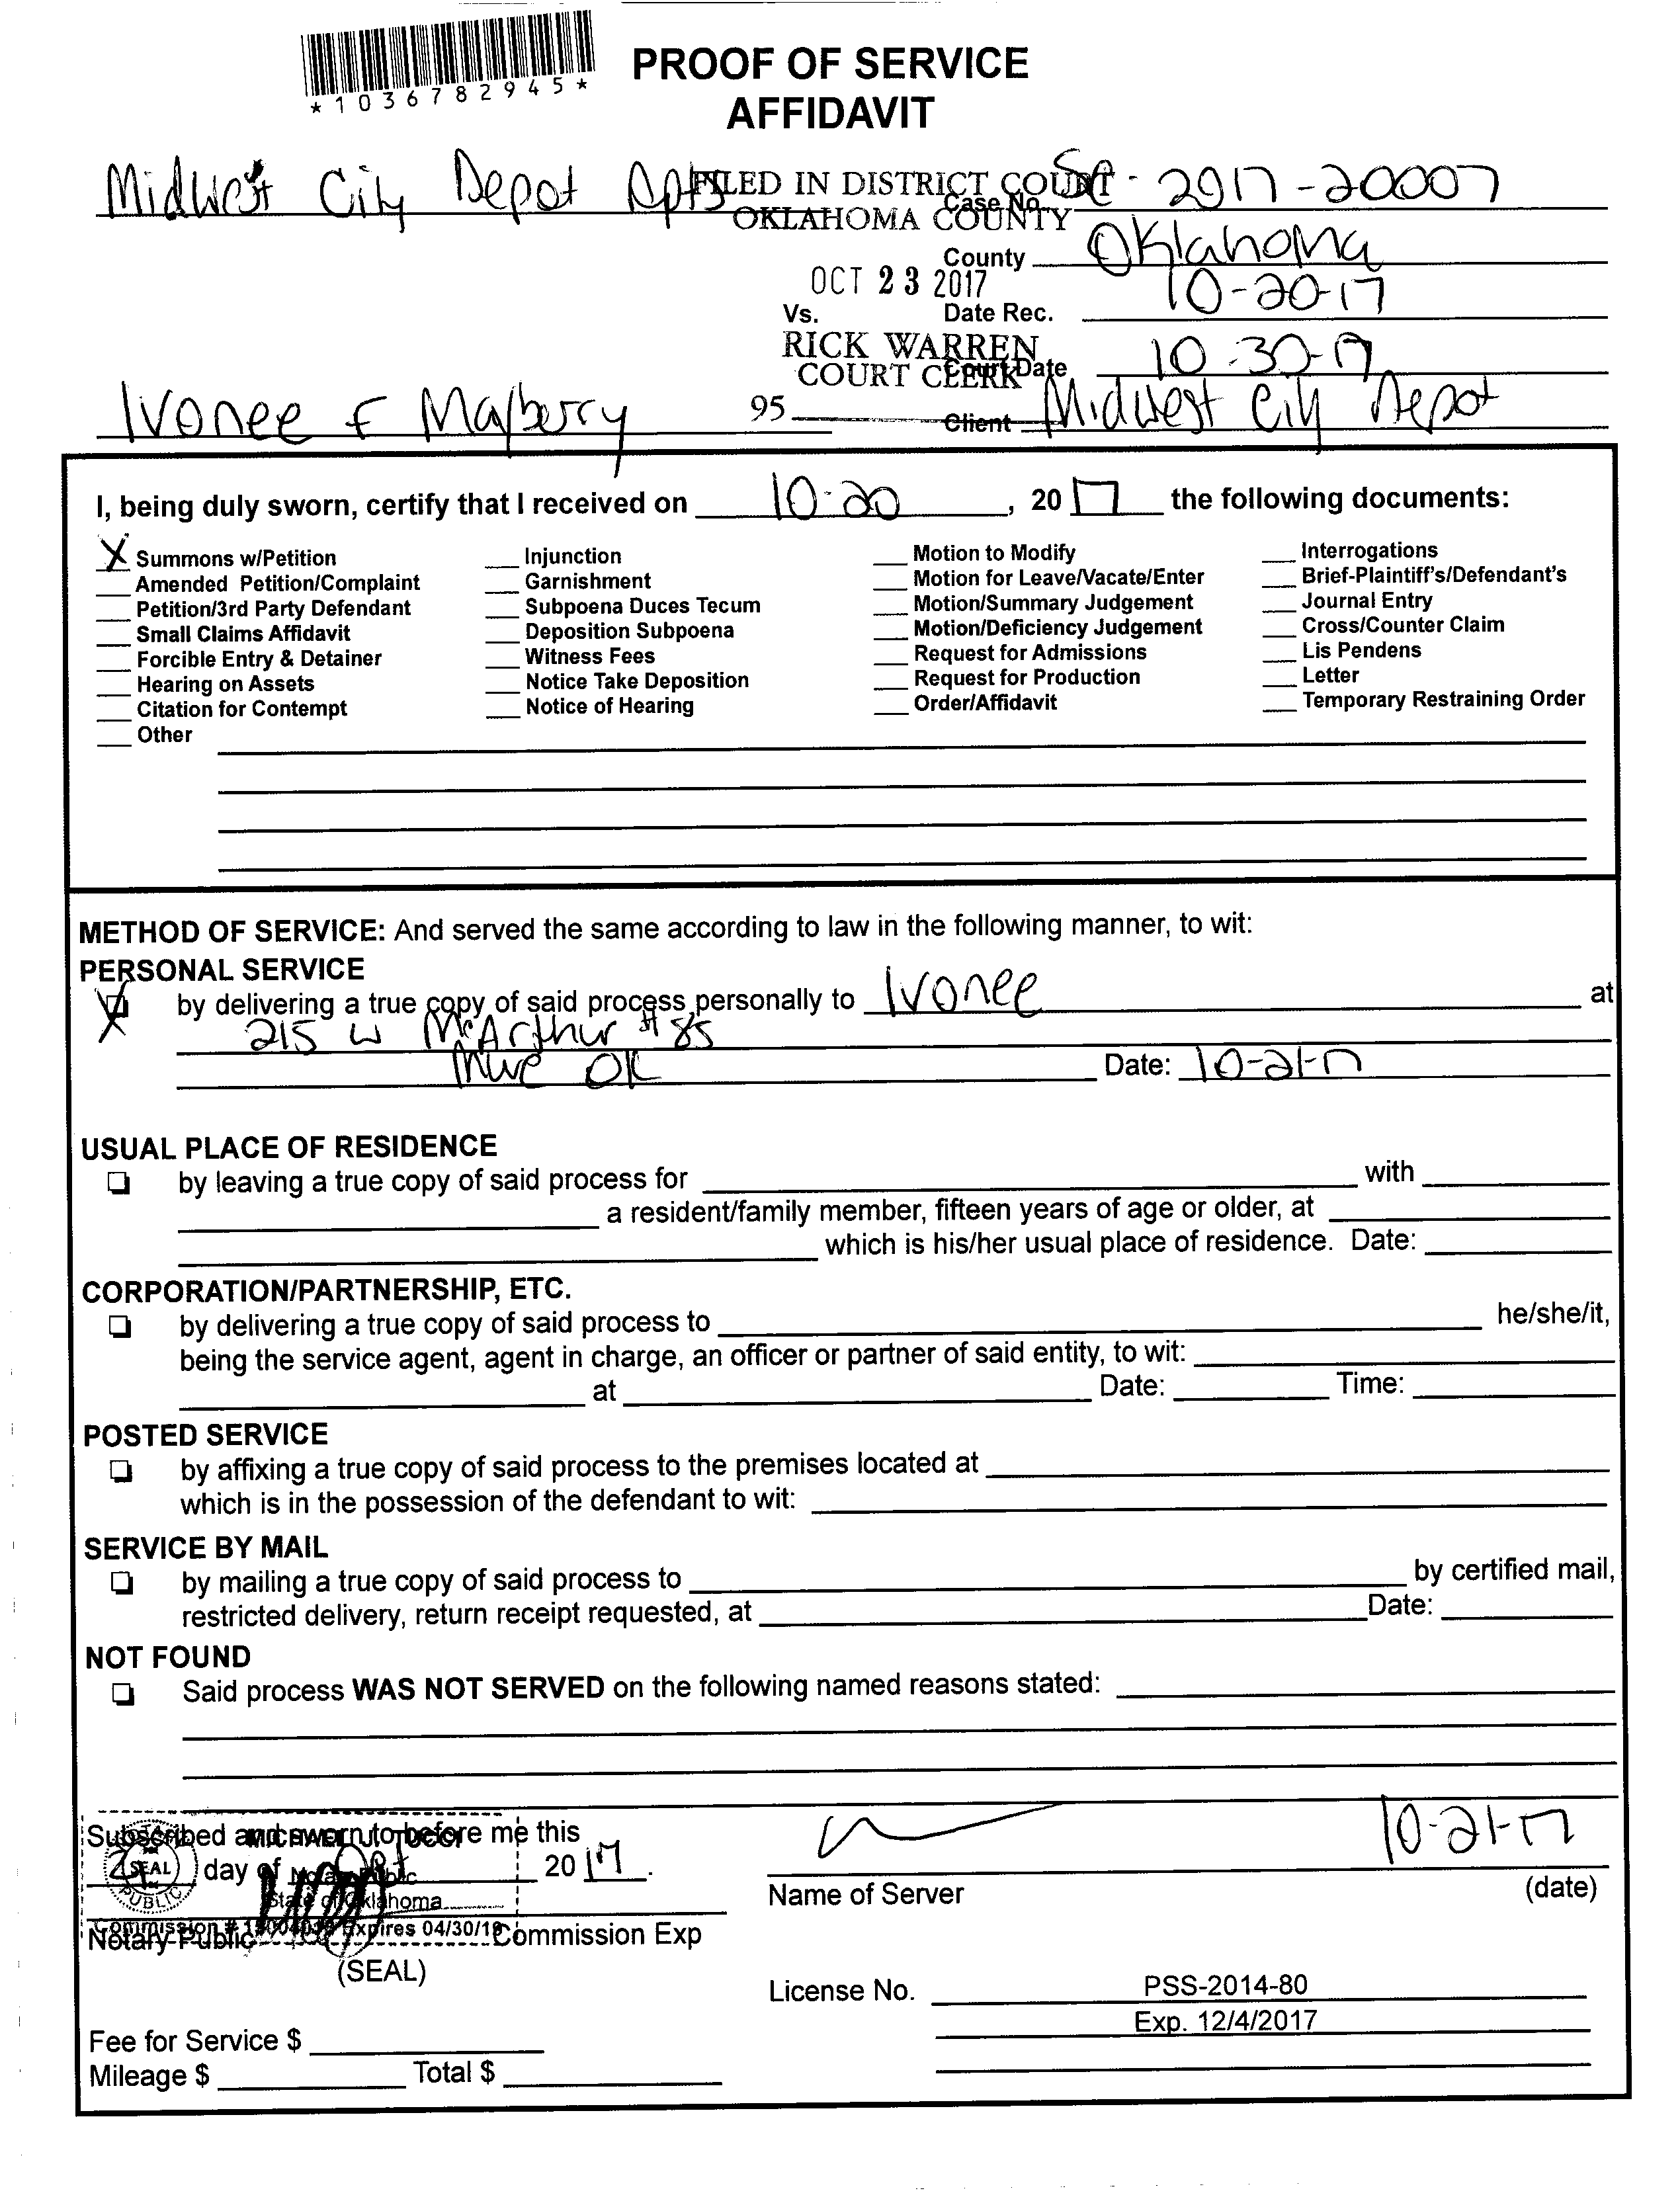 *1036782945*
PROOF OF SERVICE
AFFIDAVIT
Midwest City Depot Apts
FILED IN DISTRICT COURT
OKLAHOMA COUNTY
Case No. SC-2017-20007
County Oklahoma
OCT 23 2017
Vs.
Date Rec. 10-20-17
RICK WARREN
COURT CLERK
Court Date 10-30-17
Ivonee F Mayberry
95
Client Midwest City Depot
I, being duly sworn, certify that I received on 10-20, 20 17 the following documents:
X Summons w/Petition
Amended Petition/Complaint
Petition/3rd Party Defendant
Small Claims Affidavit
Forcible Entry & Detainer
Hearing on Assets
Citation for Contempt
Other
Injunction
Garnishment
Subpoena Duces Tecum
Deposition Subpoena
Witness Fees
Notice Take Deposition
Notice of Hearing
Motion to Modify
Motion for Leave/Vacate/Enter
Motion/Summary Judgement
Motion/Deficiency Judgement
Request for Admissions
Request for Production
Order/Affidavit
Interrogations
Brief-Plaintiff's/Defendant's
Journal Entry
Cross/Counter Claim
Lis Pendens
Letter
Temporary Restraining Order
METHOD OF SERVICE: And served the same according to law in the following manner, to wit:
PERSONAL SERVICE
X by delivering a true copy of said process personally to Ivonee at
215 W McArthur #85
MWC OK Date: 10-21-17
USUAL PLACE OF RESIDENCE
by leaving a true copy of said process for with
a resident/family member, fifteen years of age or older, at
which is his/her usual place of residence. Date:
CORPORATION/PARTNERSHIP, ETC.
by delivering a true copy of said process to he/she/it,
being the service agent, agent in charge, an officer or partner of said entity, to wit:
at Date: Time:
POSTED SERVICE
by affixing a true copy of said process to the premises located at
which is in the possession of the defendant to wit:
SERVICE BY MAIL
by mailing a true copy of said process to by certified mail,
restricted delivery, return receipt requested, at Date:
NOT FOUND
Said process WAS NOT SERVED on the following named reasons stated:
Subscribed and sworn to before me this
21 day of Oct 2017.
MICHAEL J. TUCCI
SEAL
PUBLIC
Notary Public
State of Oklahoma
Commission # Expires 04/30/19
Notary Public Commission Exp
(SEAL)
10-21-17
Name of Server (date)
License No. PSS-2014-80
Exp. 12/4/2017
Fee for Service $
Mileage $ Total $